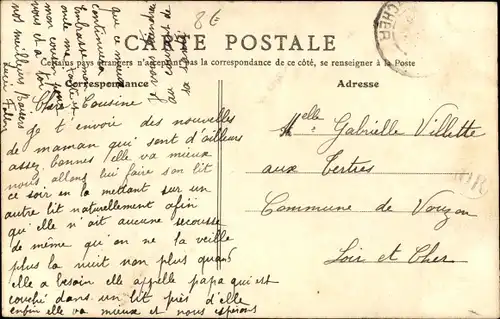 8€
CARTE POSTALE
Certains pays étrangers n'acceptant pas la correspondance de ce côté, se renseigner à la Poste
Correspondance
Adresse
CHER
Chère Cousine
Je t'envoie des nouvelles
de maman qui sont d'ailleurs
assez bonnes elle va mieux
nous allons lui faire son lit
ce soir en la mettant sur un
autre lit naturellement afin
qu'elle n'ait aucune secousse
de même qu'on ne la veille
plus la nuit non plus quand
elle a besoin elle appelle papa qui est
couché dans un lit près d'elle
enfin elle va mieux et nous espérons
que ce mieux
continuera
Embrasse mon
oncle ma tante
mon cousin pour
nous et à toi
nos meilleurs Baisers
Melle Gabrielle Villette
aux Tertres
Commune de Vouzon
Loir et Cher